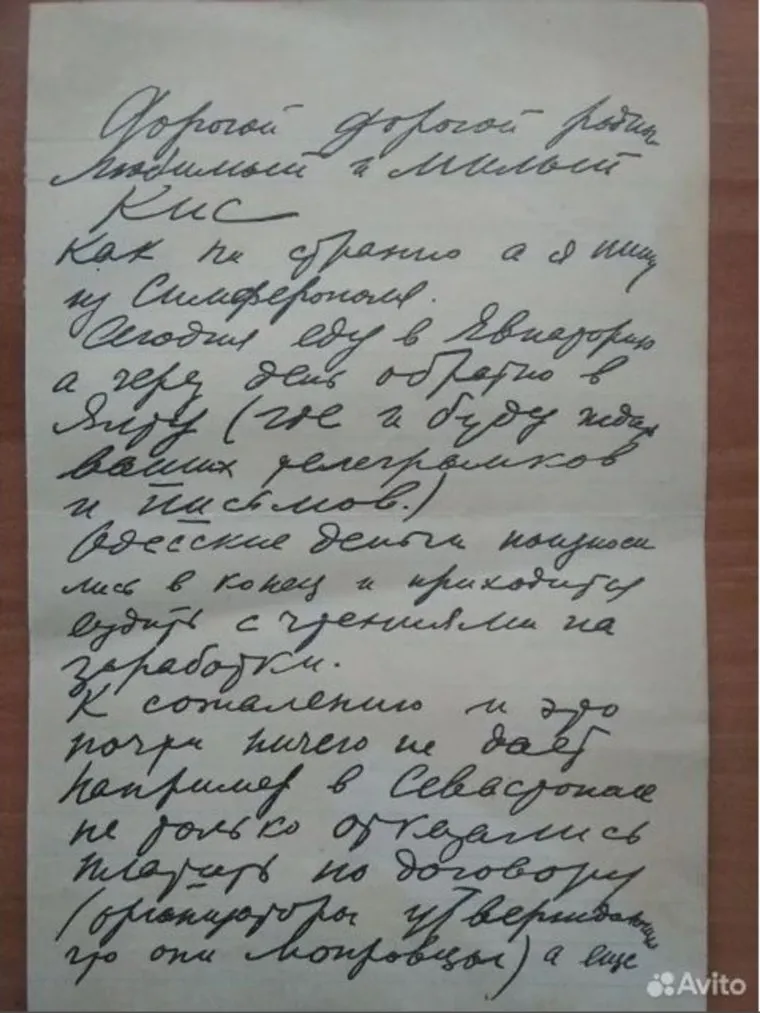 Дорогой дорогой родны-
любимый и милый
Кис
Как ни странно а я пишу
из Симферополя.
Сегодня еду в Евпаторию
а через день обратно в
Ялту (где и буду ждать
ваших телеграмков
и письмов.)
Одесские деньги поизноси
лись в конец и приходится
ездить с чтениями на
заработки.
К сожалению и это
почти ничего не дает
Например в Севастополе
не только отказались
платить по договору
(организаторы утверждающие
что они мопровцы) а еще
Avito